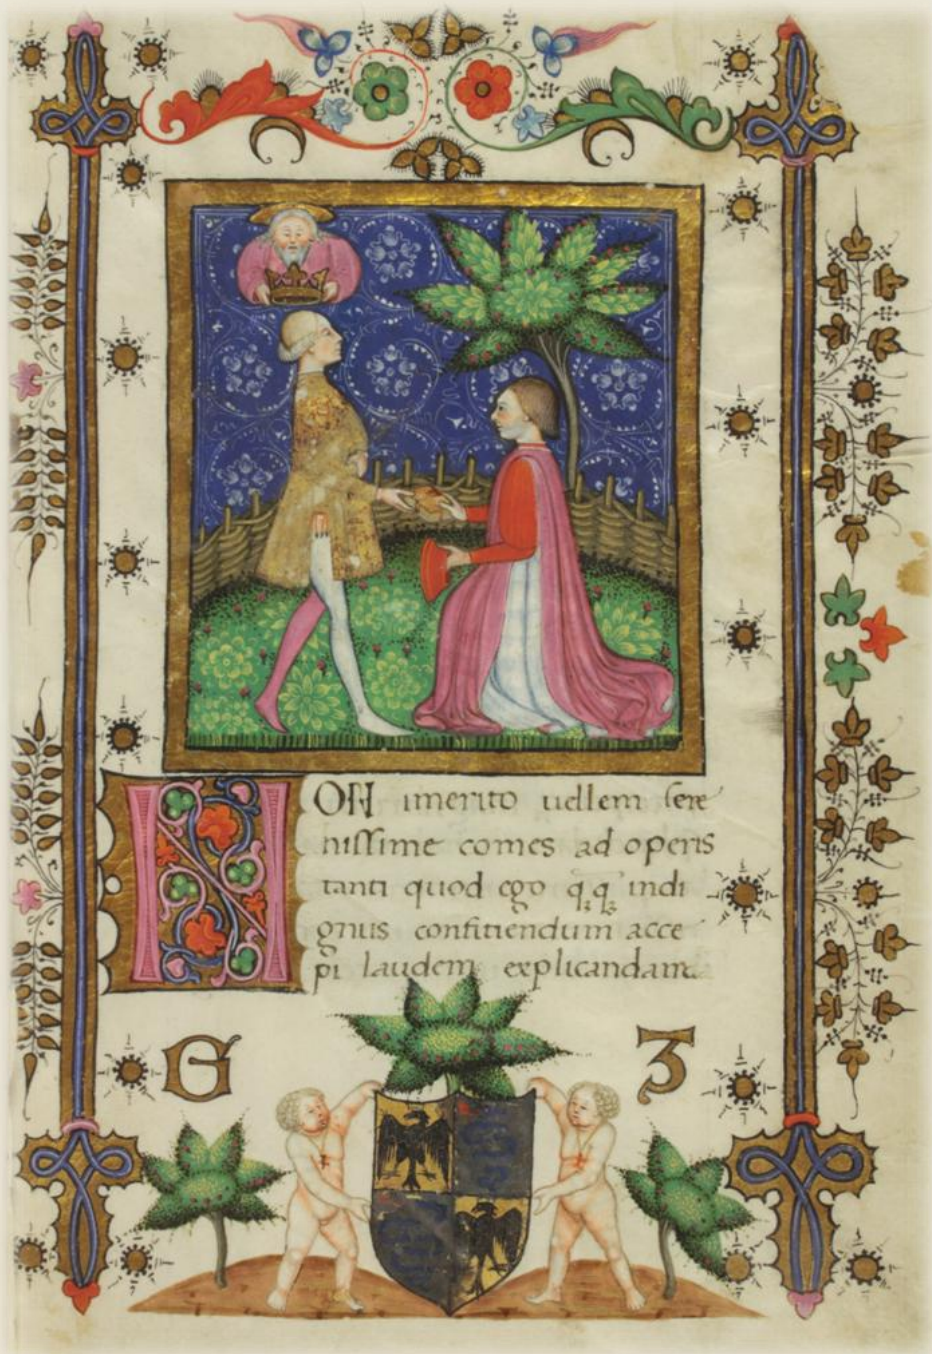 NON imerito uellem sere
nissime comes ad operis
tanti quod ego q̃q̃ indi
gnus confitiendum acce
pi laudem explicandam
G 3